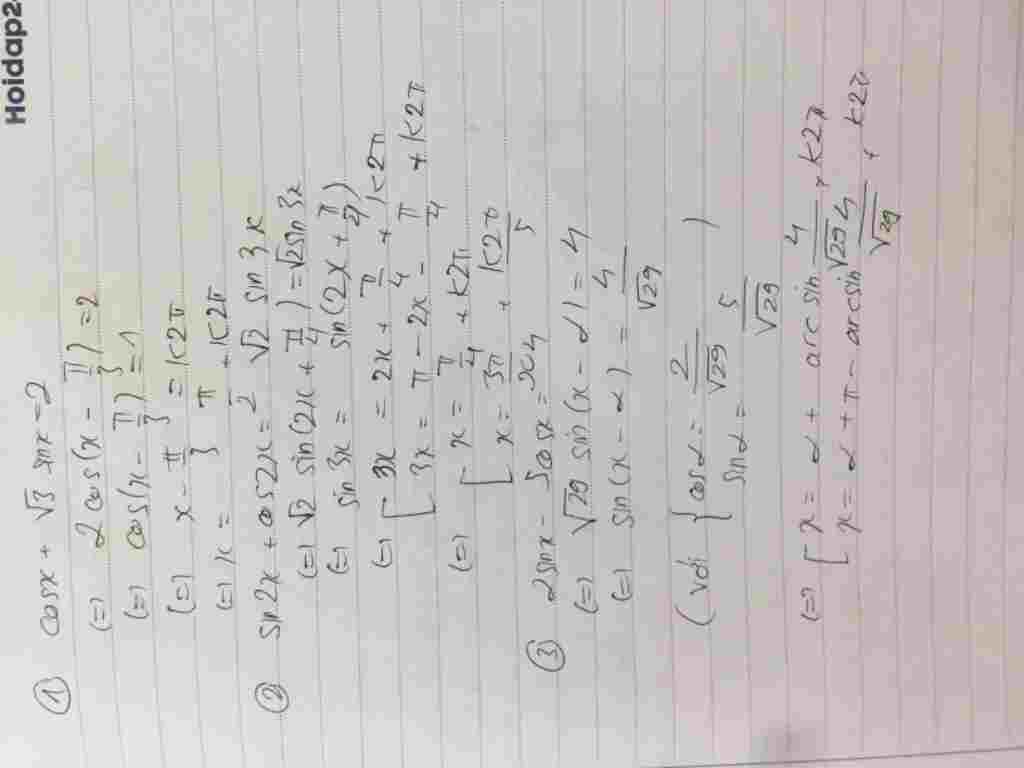 Hoidap2
① cosx + √3 sinx = 2
(=) 2 cos(x - π/3) = 2
(=) cos(x - π/3) = 1
(=) x - π/3 = k2π
(=) x = π/3 + k2π
② sin2x + cos2x = √2 sin3x
(=) √2 sin(2x + π/4) = √2 sin3x
(=) sin3x = sin(2x + π/4)
(=) [ 3x = 2x + π/4 + k2π
[ 3x = π - 2x - π/4 + k2π
(=) [ x = π/4 + k2π
[ x = 3π/20 + k2π/5
③ 2sinx - 5cosx = 4
(=) √29 sin(x - α) = 4
(=) sin(x - α) = 4/√29
(với { cosα = 2/√29
sinα = 5/√29 )
(=) [ x = α + arcsin 4/√29 + k2π
[ x = α + π - arcsin 4/√29 + k2π